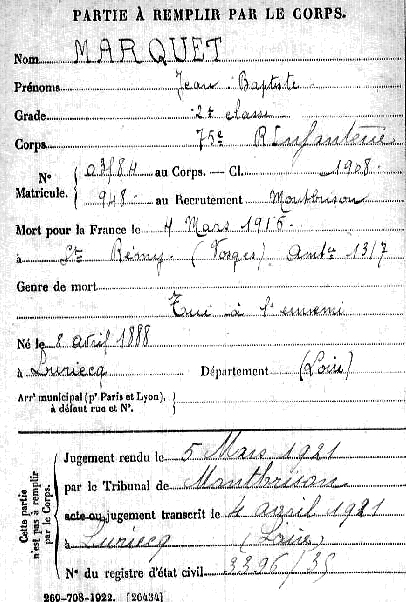 PARTIE À REMPLIR PAR LE CORPS.
Nom MARQUET
Prénoms Jean Baptiste
Grade 2e classe
Corps 75e R Infanterie
Nº Matricule. { 03784 au Corps. — Cl. 1908
948 au Recrutement Montbrison
Mort pour la France le 4 Mars 1915
à St Rémy (Vosges) Ambce 13/7
Genre de mort
Tué à l'ennemi
Né le 8 avril 1888
à Luriecq Département (Loire)
Arrt municipal (pr Paris et Lyon), à défaut rue et Nº.
Cette partie n'est pas à remplir par le Corps.
Jugement rendu le 5 Mars 1921
par le Tribunal de Montbrison
acte ou jugement transcrit le 4 avril 1921
à Luriecq (Loire)
Nº du registre d'état civil 3396/35
269-708-1922. [26434]